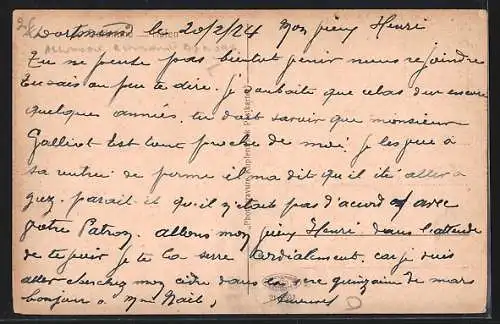 Dortmund le 20/2/24 Mon vieux Henri
Tu ne pense pas bientot venir nous rejoindre
tu sais un peu te dire. je souhaite que celas dur encore
quelques années. tu doit savoir que monsieur
Galliot est tout proche de moi. je les vue a
sa rentré de perme il ma dit qu'il été aller a
parait-il qu'il n'était pas d'acord avec
votre Patron. allons mon vieux Henri dans l'attende
de te voir je te la serre Cordialement. car je vais
aller cherchez mon cidre dans la 1ere quinzaine de mars
bonjour a Mme
Photogravure Kupferdruck Postkarte